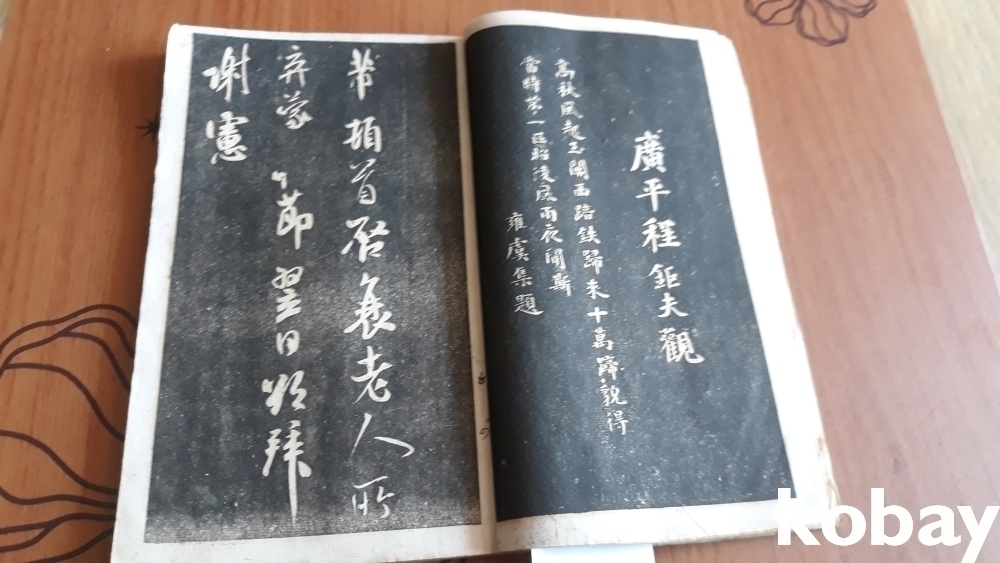 廣平程鉅夫觀
高秋風起玉關西踣鉄歸来十萬蹄貌得
當時苐一匹昭陵風雨夜聞斯
雍虞集題
芾頓首启衰老人所
弃蒙 節翌日拜
謝憲
kobay